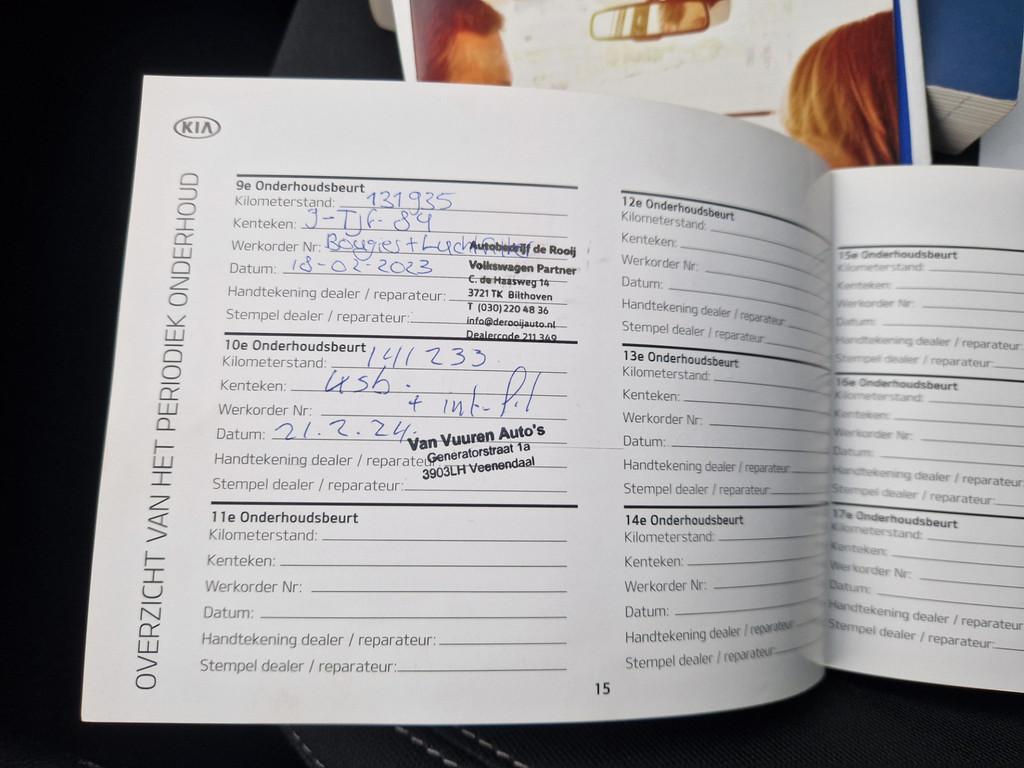 KIA
OVERZICHT VAN HET PERIODIEK ONDERHOUD
9e Onderhoudsbeurt
Kilometerstand: 131935
Kenteken:
Werkorder Nr: Bougies + Luchtfilter
Datum: 18-02-2023
Handtekening dealer / reparateur:
Stempel dealer / reparateur:
Autobedrijf de Rooij
Volkswagen Partner
C. de Haasweg 14
3721 TK Bilthoven
T (030) 220 48 36
info@derooijauto.nl
Dealercode 211 349
10e Onderhoudsbeurt
Kilometerstand: 141233
Kenteken:
+ int. fil
Werkorder Nr:
Datum: 21.2.24.
Handtekening dealer / reparateur
Stempel dealer / reparateur:
Van Vuuren Auto's
Generatorstraat 1a
3903LH Veenendaal
11e Onderhoudsbeurt
Kilometerstand:
Kenteken:
Werkorder Nr:
Datum:
Handtekening dealer / reparateur:
Stempel dealer / reparateur:
12e Onderhoudsbeurt
Kilometerstand:
Kenteken:
Werkorder Nr:
Datum:
Handtekening dealer / reparateur:
Stempel dealer / reparateur:
13e Onderhoudsbeurt
Kilometerstand:
Kenteken:
Werkorder Nr:
Datum:
Handtekening dealer / reparateur:
Stempel dealer / reparateur:
14e Onderhoudsbeurt
Kilometerstand:
Kenteken:
Werkorder Nr:
Datum:
Handtekening dealer / reparateur:
Stempel dealer / reparateur:
15
15e Onderhoudsbeurt
Kilometerstand:
Kenteken:
Werkorder Nr:
Datum:
Handtekening dealer / reparateur:
Stempel dealer / reparateur:
16e Onderhoudsbeurt
Kilometerstand:
Kenteken:
Werkorder Nr:
Datum:
Handtekening dealer / reparateur:
Stempel dealer / reparateur:
17e Onderhoudsbeurt
Kilometerstand:
Kenteken:
Werkorder Nr:
Datum:
Handtekening dealer / reparateur:
Stempel dealer / reparateur: